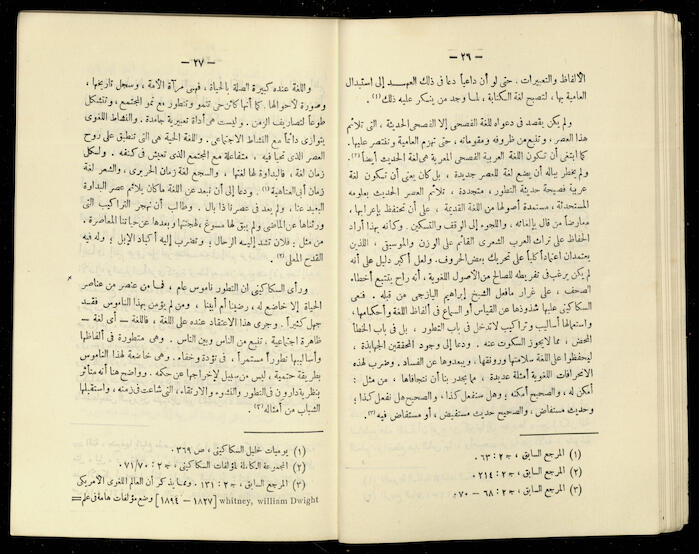 — ٢٦ —
الألفاظ والتعبيرات. حتى لو أن داعياً دعا فى ذلك العهد إلى استبدال
العامية بها، لتصبح لغة الكتابة، لما وجد من ينكر عليه ذلك (١).
ولم يكن يقصد فى دعواه للغة الفصحى إلا الفصحى الحديثة، التى تلائم
هذا العصر، وتنبع من ظروفه ومقوماته، حتى تهزم العامية وتنتصر عليها.
كما ابتغى أن تكون اللغة العربية الفصحى المعربة هى لغة الحديث أيضاً (٢).
ولم يخطر بباله أن يضع لغة للعصر جديدة، بل كان يعنى أن تكون لغة
عربية فصيحة حديثة التطور، متجددة، تلائم العصر الحديث بعلومه
المستحدثة، مستمدة أصولها من اللغة القديمة، على أن تحتفظ بإعرابها،
معارضاً من قال بإلغائه، واللجوء إلى الوقف والتسكين. وكانه بهذا أراد
الحفاظ على تراث العرب الشعرى القائم على الوزن والموسيقى، اللذين
يعتمدان اعتماداً كلياً على تحريك بعض الحروف. ولعل أكبر دليل على أنه
لم يكن يرغب فى تفريطه للصالح من الأصول اللغوية، أنه راح يتتبع أخطاء
الصحف، على غرار ما فعل الشيخ إبراهيم اليازجى من قبله. فنعى
السكاكينى عليها شذوذها عن القياس أو السماع فى ألفاظ اللغة وأحكامها،
واستعمالها أساليب وتراكيب لا تدخل فى باب التطور، بل فى باب الخطأ
المحض، مما لا يجوز السكوت عنه. ودعا إلى وجود المحققين الجهابذة،
ليحفظوا على اللغة سلامتها ورونقها، ويبعدوها عن الفساد. وضرب لهذه
الانحرافات اللغوية أمثلة عديدة، مما يجدر بنا أن نتجافاها، من مثل:
أمكن له، والصحيح أمكنه؛ وهل سنفعل كذا، والصحيح هل نفعل كذا؛
وحديث مستفاض، والصحيح حديث مستفيض، أو مستفاض فيه (٣).
(١) المرجع السابق، ج ٢ : ٦٣.
(٢) المرجع السابق، ج ٢ : ٢١٤.
(٣) المرجع السابق، ج ٢ : ٦٨ — ٧٠.
— ٢٧ —
واللغة عنده كبيرة الصلة بالحياة، فهى مرآة الأمة، وسجل تاريخها،
وصورة لأحوالها. كما أنها كائن حى تنمو وتتطور مع نمو المجتمع، وتتشكل
طوعاً لتصاريف الزمن. وليست هى أداة تعبيرية جامدة. والنشاط اللغوى
يتوازى دائماً مع النشاط الاجتماعى. واللغة الحية هى التى تنطبق على روح
العصر الذى تحيا فيه، متفاعلة مع المجتمع الذى تعيش فى كنفه. ولكل
زمان لغة، فالبداوة لها لغتها، والسجع لغة زمان الحريرى، والشعر لغة
زمان أبى العتاهية (١). ودعا إلى أن نبعد عن اللغة ما كان يلائم عصر البداوة
البعيد عنا، ولم يعد فى عصرنا ذا بال. وطالب أن نهجر التراكيب التى
ورثناها عن الماضى ولم يبق لها مسوغ، لهجنتها وبعدها عن حياتنا المعاصرة.
من مثل: فلان تشد إليه الرحال، وتضرب إليه أكباد الإبل؛ وله فيه
القدح المعلى (٢).
ورأى السكاكينى أن التطور ناموس عام، فما من عنصر من عناصر
الحياة إلا خاضع له، رضينا أم أبينا، ومن لا يؤمن بهذا الناموس فقد
جهل كثيراً. وجرى هذا الاعتقاد عنده على اللغة، فاللغة — أى لغة —
ظاهرة اجتماعية، تنبع من الناس وبين الناس. وهى متطورة فى ألفاظها
وأساليبها تطوراً مستمراً، فى تؤدة وخفاء. وهى خاضعة لهذا الناموس
بطريقة حتمية، ليس من سبيل لإخراجها عن حكمه. وواضح هنا أنه متأثر
بنظرية دارون فى التطور والنشوء والارتقاء، التى شاعت فى زمنه، واستقبلها
الشباب من أمثاله (٣).
(١) يوميات خليل السكاكينى، ص ٣٦٩.
(٢) المجموعة الكاملة لمؤلفات السكاكينى، ج ٢ : ٧١/٧٠.
(٣) المرجع السابق، ج ٢ : ١٣١. ومما يذكر أن العالم اللغوى الأمريكى
whitney, william Dwight [١٨٢٧ — ١٨٩٤] وضع مؤلفات هامة فى علم =